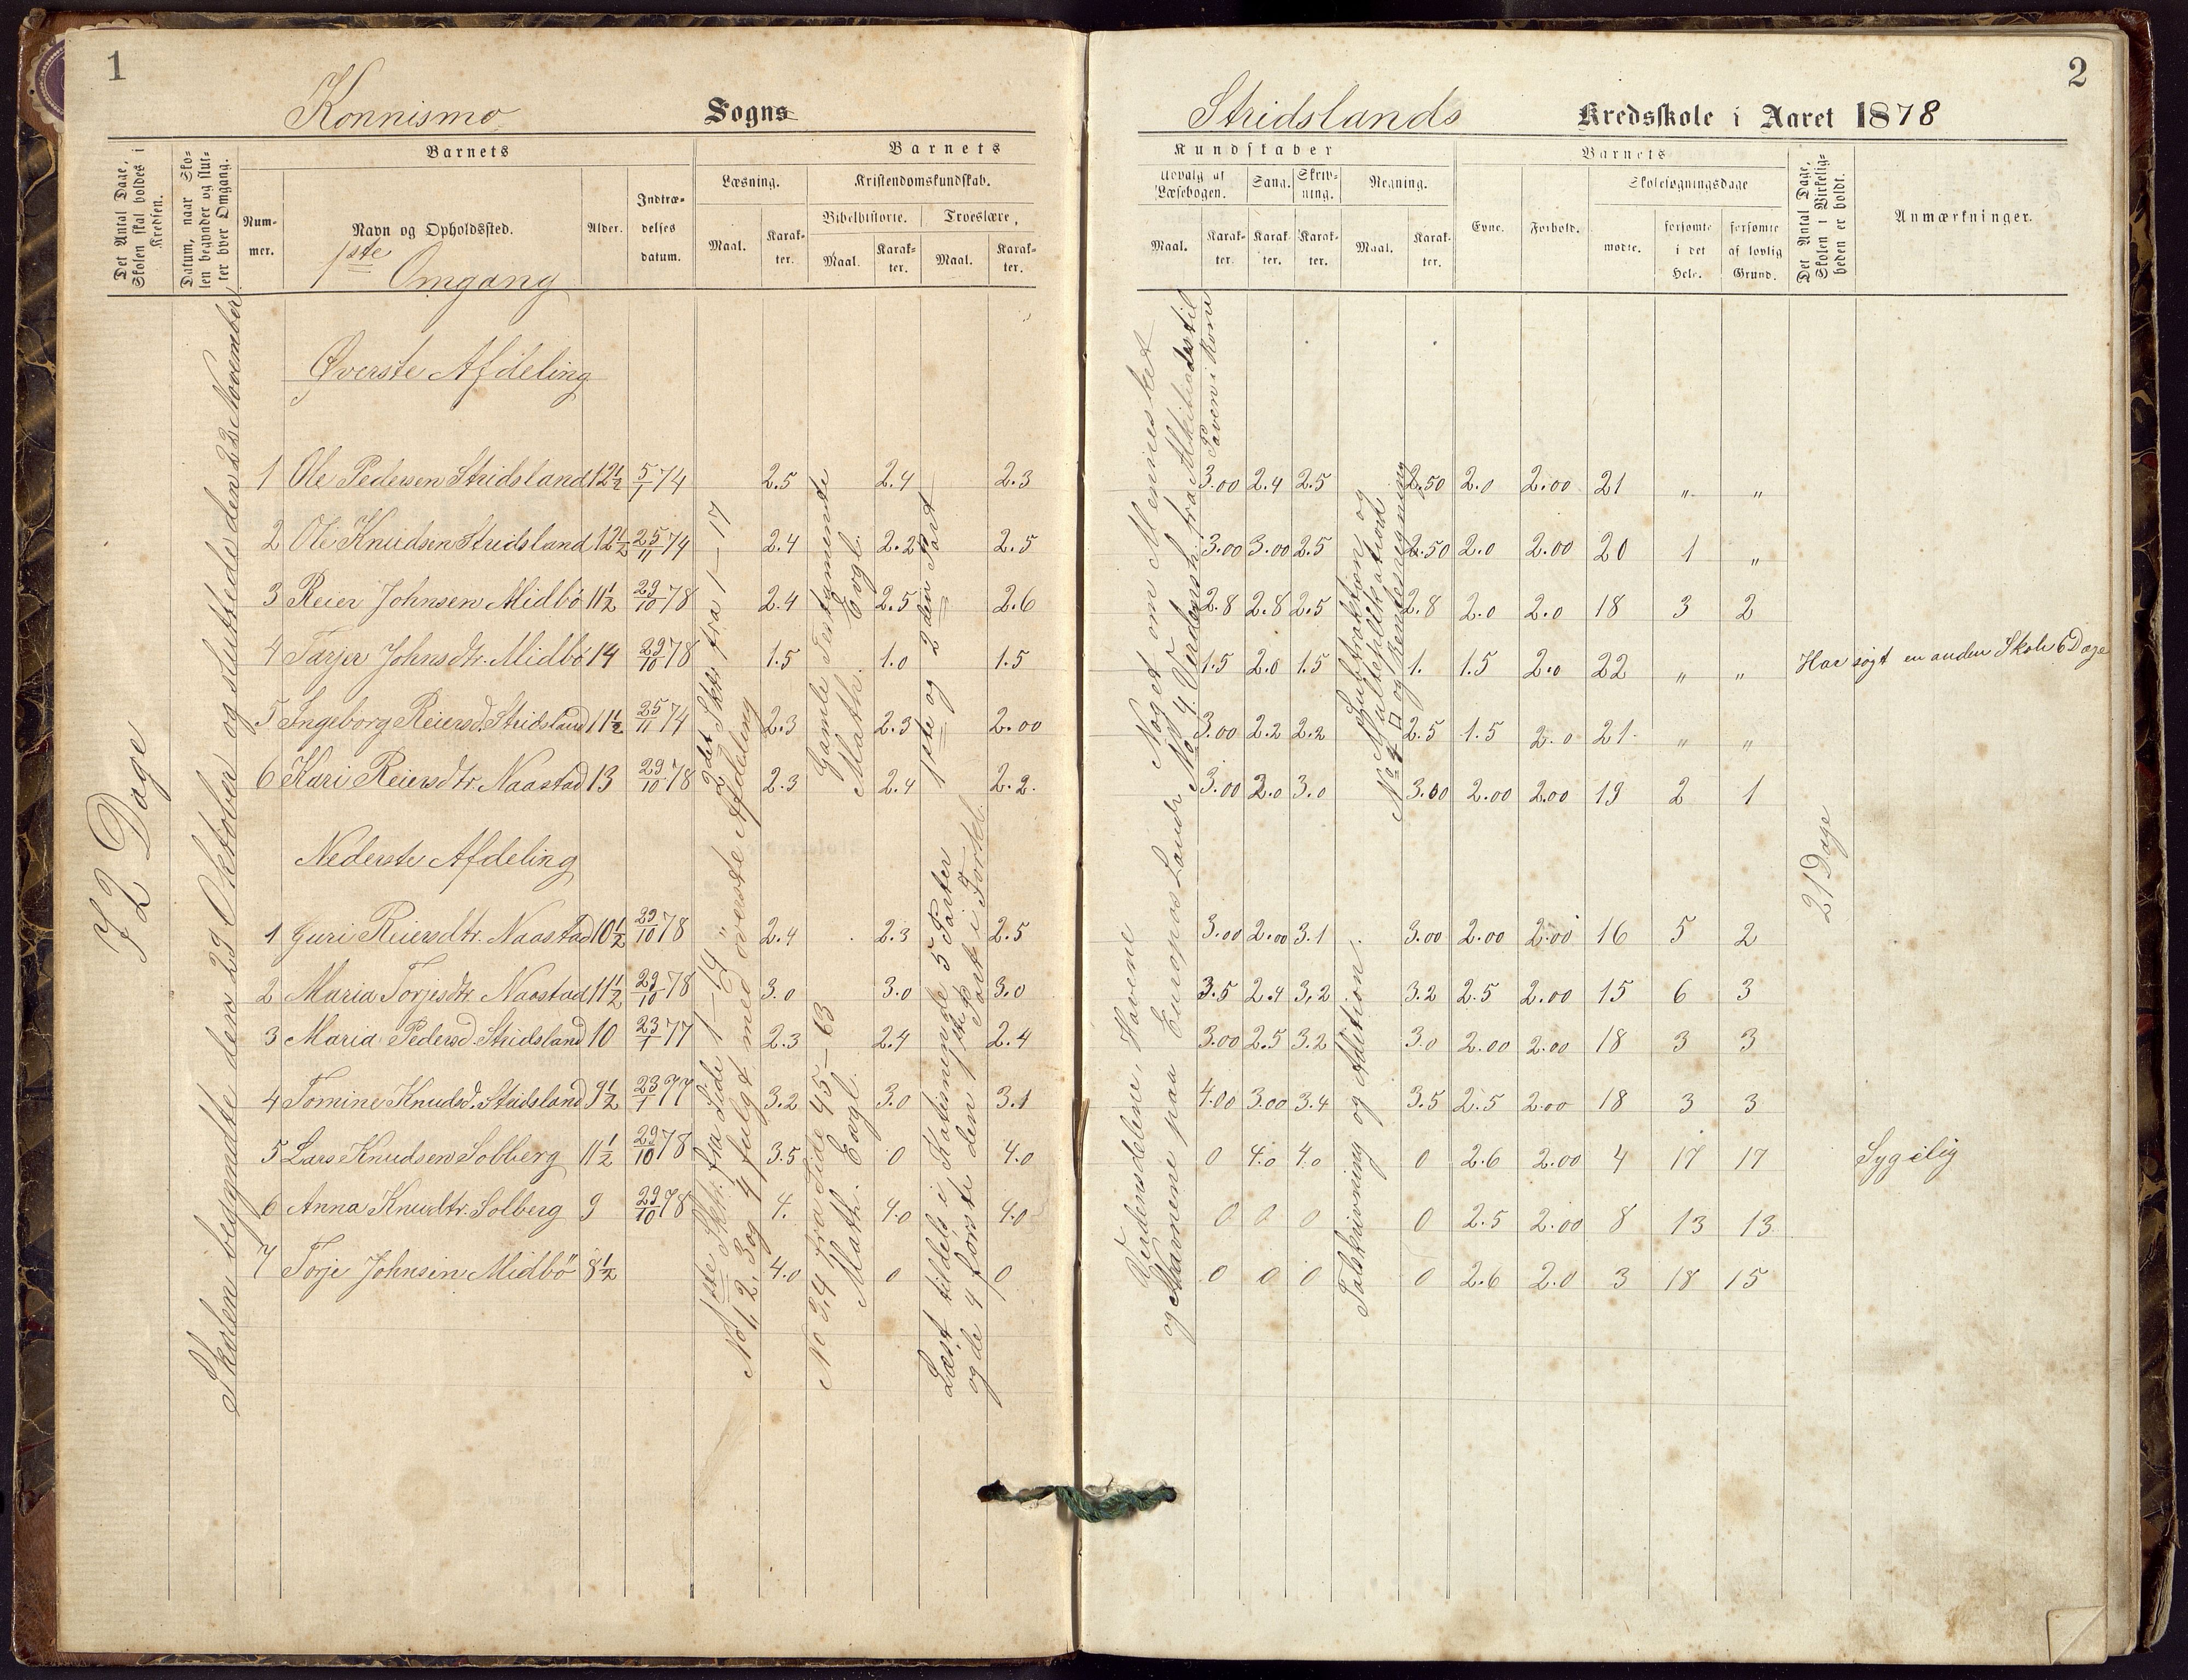 1
Konnismo Sogns
Det Antal Dage, Skolen skal holdes i Kredsen.
Datum, naar Skolen begynder og slutter hver Omgang.
Barnets
Nummer.
Navn og Opholdssted.
Alder.
Indtrædelses datum.
Barnets
Læsning.
Kristendomskundskab.
Bibelhistorie.
Troeslære,
Maal. Karakter. Maal. Karakter. Maal. Karakter.
1ste Omgang
72 Dage
Skolen begyndte den 29 Oktober og sluttede den 22 November
Øverste Afdeling
1 Ole Pedersen Stridsland 12½ 5/1 74 2.5 2.4 2.3
2 Ole Knudsen Stridsland 12½ 25/11 74 2.4 2.2 2.5
3 Reier Johnsen Midbö 11½ 29/10 78 2.4 2.5 2.6
4 Tarjer Johnsdtr. Midbö 14 29/10 78 1.5 1.0 1.5
5 Ingeborg Reiersd. Stridsland 11½ 25/11 74 2.3 2.3 2.00
6 Kari Reiersdtr. Naastad 13 29/10 78 2.3 2.4 2.2.
2det Skr. fra 1–17
Gamle Testamente
Math. Evgl.
1ste og 2den Part
Nederste Afdeling
1 Guri Reiersdtr. Naastad 10½ 29/10 78 2.4 2.3 2.5
2 Maria Torjesdtr Naastad 11½ 29/10 78 3.0 3.0 3.0
3 Maria Pedersd. Stridsland 10 23/1 77 2.3 2.4 2.4
4 Tomine Knudsd. Stridsland 9½ 23/1 77 3.2 3.0 3.1
5 Lars Knudsen Solberg 11½ 29/10 78 3.5 0 4.0
6 Anna Knudtr. Solberg 9 29/10 78 4. 4.0 4.0
7 Torje Johnsen Midbö 8½ 4.0 0 0
1ste Skr. fra Side 1–19
No 1, 2, 3 og 4 fulgt med øverste Afdeling
No 3,4 fra Side 45–63
Math. Evgl.
Læst tildels i Katinnende 5 Parter
og de 4 første den 1ste Part i Forkl.
2
Stridslands Kredsskole i Aaret 1878
Kundskaber
Udvalg af Læsebogen.
Sang.
Skrivning.
Regning.
Maal. Karakter. Karakter. Karakter. Maal. Karakter.
Barnets
Evne. Forhold.
Skolesøgningsdage
mødte.
forsømte i det Hele.
forsømte af lovlig Grund.
Det Antal Dage, Skolen i Virkeligheden er holdt.
Anmærkninger.
Noget om Mennesket
No 4. Verdensh. fra Alkibiades til Paven i Rom
Subtraktion og Multeplikation
No 4 og Rentesregning
3.00 2.4 2.5 2.50 2.0 2.00 21 „ „
3.00 3.00 2.5 2.50 2.0 2.00 20 1 „
2.8 2.8 2.5 2.8 2.0 2.0 18 3 2
1.5 2.0 1.5 1. 1.5 2.0 22 „ „ Har søgt en anden Skole 6 Dage
3.00 2.2 2.2 2.5 1.5 2.0 21 „ „
3.00 2.0 3.0 3.00 2.00 2.00 19 2 1
21 Dage
Verdensdelene, Havene
og Navnene paa Europas Lande
Talskrivning og Adition
3.00 2.00 3.1 3.00 2.00 2.00 16 5 2
3.5 2.4 3.2 3.2 2.5 2.00 15 6 3
3.00 2.5 3.2 3.0 2.00 2.00 18 3 3
4.00 3.00 3.4 3.5 2.5 2.00 18 3 3
0 4.0 4.0 0 2.6 2.00 4 17 17 Sygelig
0 0 0 0 2.5 2.00 8 13 13
0 0 0 0 2.6 2.0 3 18 15